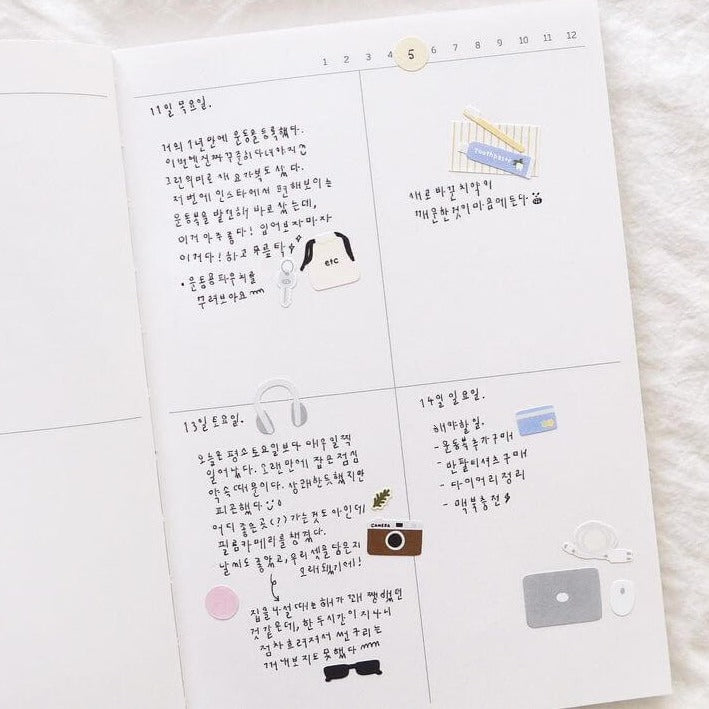 1 2 3 4 5 6 7 8 9 10 11 12
11일 목요일.
거의 1년만에 운동을 등록했다.
이번엔 진짜 꾸준히 다녀야지
그런 의미로 새 요가복도 샀다.
저번에 인스타에서 편해보이는
운동복을 발견해 바로 샀는데,
이거 아주 좋다! 입어보자마자
이거다! 하고 무릎 탁
• 운동용 파우치를
꾸려보아요
etc
Toothpaste
새로 바꾼 치약이
깨끗한 것이 마음에 든다
13일 토요일.
오늘은 평소 토요일보다 매우 일찍
일어났다. 오랜만에 잡은 점심
약속 때문이다. 상쾌한듯했지만
피곤했다
어디 좋은 곳(?) 가는것도 아인데
필름카메라를 챙겼다.
날씨도 좋았고, 우리 셋을 담은지
오래 됐기에!
CAMERA
집을 나설 때는 해가 꽤 쨍했던
것 같은데, 한두시간이 지나니
점차 흐려져서 썬구리는
꺼내보지도 못했다
14일 일요일.
해야할일.
- 운동복 추가구매
- 반팔티셔츠 구매
- 다이어리 정리
- 맥북충전